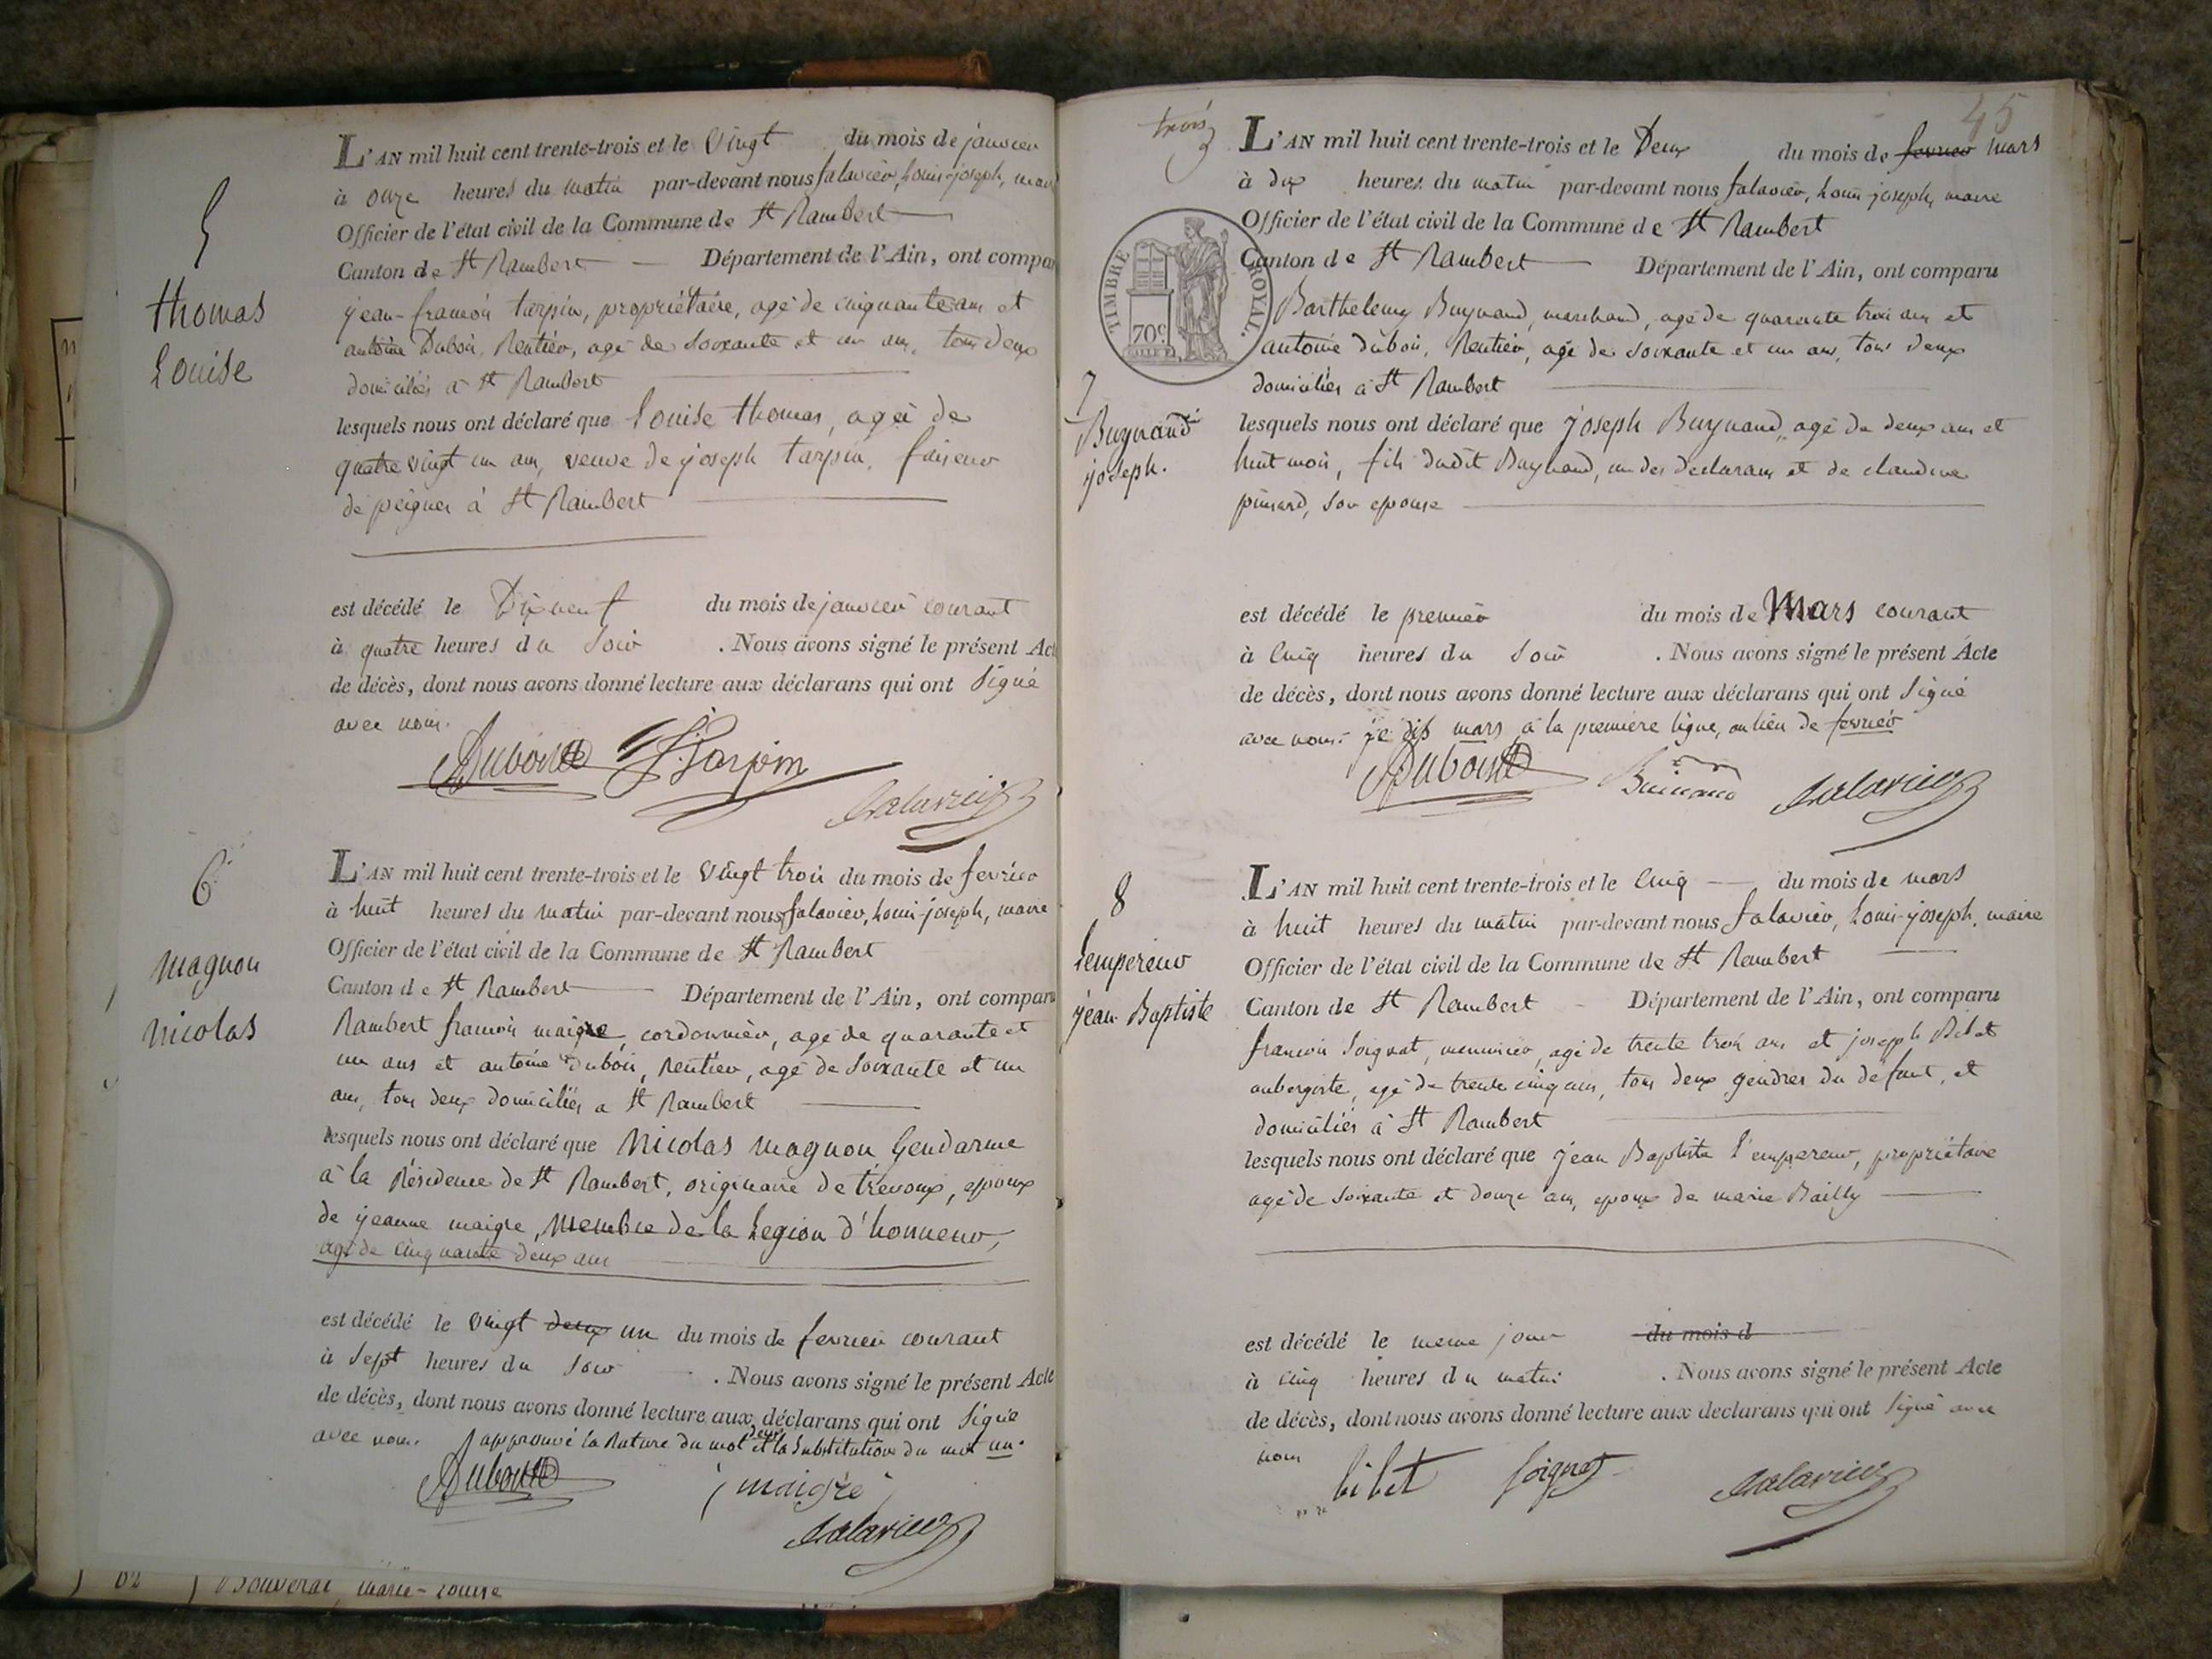 5
thomas
Louise
L'AN mil huit cent trente-trois et le Vingt du mois de janvier
à onze heures du matin par-devant nous falavier, Louis-joseph, mai
Officier de l'état civil de la Commune de St Rambert
Canton de St Rambert Département de l'Ain, ont compar
jean-francois tarpin, propriétaire, agé de cinquante ans et
antoine Dubois, Rentier, agé de Soixante et un ans, tous Deux
domiciliés à St Rambert
lesquels nous ont déclaré que Louise thomas, agée de
quatre vingt un ans, veuve de joseph tarpin, faiseur
de peignes à St Rambert
est décédé le Dixneuf du mois de janvier courant
à quatre heures du Soir . Nous avons signé le présent Act
de décès, dont nous avons donné lecture aux déclarans qui ont Signé
avec nous.
Dubois J. Tarpin falavier
6
magnon
nicolas
L'AN mil huit cent trente-trois et le Vingt trois du mois de fevrier
à huit heures du matin par-devant nous falavier, Louis-joseph, maire
Officier de l'état civil de la Commune de St Rambert
Canton de St Rambert Département de l'Ain, ont comparu
Rambert francois maigre, cordonnier, agé de quarante et
un ans et antoine Dubois, Rentier, agé de Soixante et un
ans, tous deux Domiciliés a St Rambert
lesquels nous ont déclaré que Nicolas magnon Gendarme
à la Résidence de St Rambert, originaire de trévoux, epoux
de jeanne maigre, Membre de la Legion d'honneur,
agé de cinquante deux ans
est décédé le Vingt deux un du mois de fevrier courant
à Sept heures du Soir . Nous avons signé le présent Acte
de décès, dont nous avons donné lecture aux déclarans qui ont Signé
avec nous. J'approuve la Rature du mot deux et la Substitution du mot un.
Dubois maigre falavier
Bouverat, marie-Louise
trois
45
L'AN mil huit cent trente-trois et le Deux du mois de fevrier mars
à dix heures du matin par-devant nous falavier, Louis-joseph, maire
Officier de l'état civil de la Commune de St Rambert
Canton de St Rambert Département de l'Ain, ont comparu
TIMBRE ROYAL.
70c
Barthelemy Buynand, marchand, agé de quarante trois ans et
antoine dubois, Rentier, agé de Soixante et un ans, tous Deux
domiciliés à St Rambert
7
Buynand
joseph.
lesquels nous ont déclaré que joseph Buynand, agé de deux ans et
huit mois, fils dudit Buynand, un des declarans et de claudine
pinard, Son epouse
est décédé le premier du mois de Mars courant
à Cinq heures du Soir . Nous avons signé le présent Acte
de décès, dont nous avons donné lecture aux déclarans qui ont Signé
avec nous. je dis mars à la première ligne, au lieu de fevrier
Dubois Buinand falavier
8
Lempereur
jean Baptiste
L'AN mil huit cent trente-trois et le Cinq du mois de mars
à huit heures du matin par-devant nous falavier, Louis-joseph, maire
Officier de l'état civil de la Commune de St Rambert
Canton de St Rambert Département de l'Ain, ont comparu
francois Soignat, menuisier, agé de trente trois ans et joseph Bibet
aubergiste, agé de trente cinq ans, tous deux gendres du défunt, et
domiciliés à St Rambert
lesquels nous ont déclaré que jean Baptiste l'empereur, propriétaire
agé de Soixante et douze ans, epoux de marie Bailly
est décédé le meme jour du mois d
à cinq heures du matin . Nous avons signé le présent Acte
de décès, dont nous avons donné lecture aux déclarans qui ont Signé avec
nous
bibet Soignat falavier